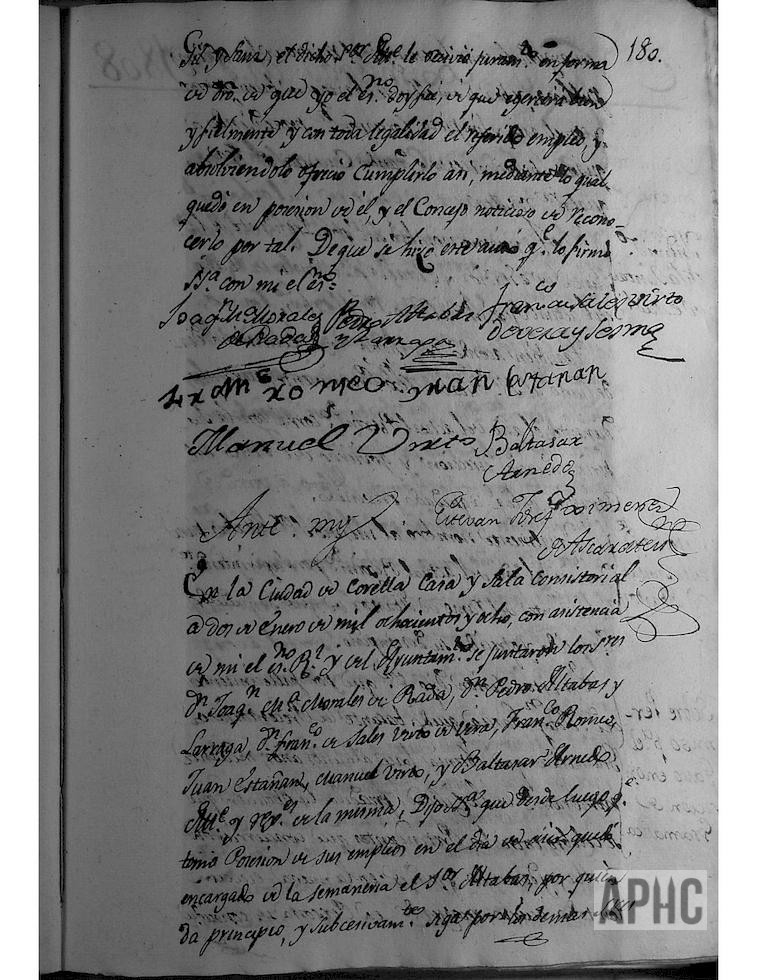 180.
y el dicho S.or Alc.e le recivió juram.to en forma
de dro. de que yo el es.no doy fee, de que egercerá bien
y fielmente y con toda legalidad el referido empleo, y
absolviendolo ofreció Cumplirlo asi, mediante lo qual
quedó en posesion de él, y el Concejo noticioso de recono-
cerlo por tal. De que se hizo este auto q.e lo firmó
S.ria con mi el es.no
Joaq.n M.a Morales Pedro Altabas Fran.co de Sales Virto
de Rada y Larraga de Vera y Sesma
Fran.co Romeo Juan Estañan
Manuel Virto Baltasar
Arnedo
Ante mi Estevan Josef Ximenez
de Ascarate
En la Ciudad de Corella Casa y Sala Consistorial
a dos de Enero de mil ochocientos y ocho, con asistencia
de mi el es.no R.l y del Ayuntam.to se juntaron los S.res
d.n Joaq.n M.a Morales de Rada, d.n Pedro Altabas y
Larraga, d.n Fran.co de Sales Virto de Vera, Fran.co Romeo,
Juan Estañan, Manuel Virto, y Baltasar Arnedo
Alc.e y Reg.res de la misma, Dijo S.ria que desde luego q.e
tomó Posesion de sus empleos en el dia de quedó
encargado de la semaneria el S.or Altabas, por quien
da principio, y subcesivam.te sigan por los demas
APHC